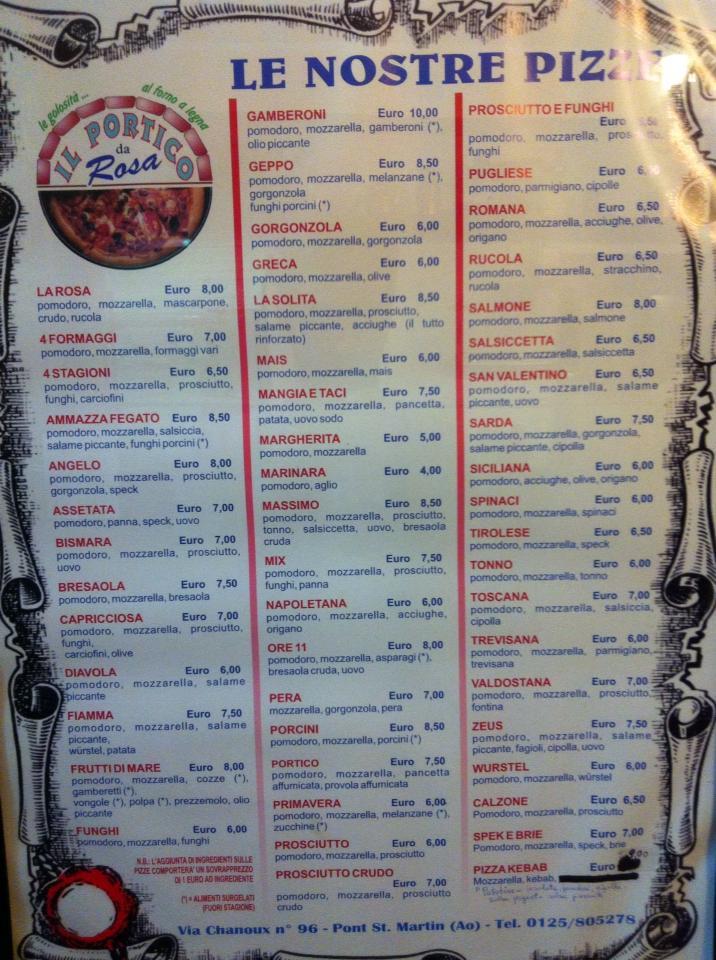 LE NOSTRE PIZZE
le golosità ...
al forno a legna
IL PORTICO
da
Rosa
LA ROSA Euro 8,00
pomodoro, mozzarella, mascarpone,
crudo, rucola
4 FORMAGGI Euro 7,00
pomodoro, mozzarella, formaggi vari
4 STAGIONI Euro 6,50
pomodoro, mozzarella, prosciutto,
funghi, carciofini
AMMAZZA FEGATO Euro 8,50
pomodoro, mozzarella, salsiccia,
salame piccante, funghi porcini (*)
ANGELO Euro 8,00
pomodoro, mozzarella, prosciutto,
gorgonzola, speck
ASSETATA Euro 7,00
pomodoro, panna, speck, uovo
BISMARA Euro 7,00
pomodoro, mozzarella, prosciutto,
uovo
BRESAOLA Euro 7,50
pomodoro, mozzarella, bresaola
CAPRICCIOSA Euro 7,00
pomodoro, mozzarella, prosciutto,
funghi,
carciofini, olive
DIAVOLA Euro 6,00
pomodoro, mozzarella, salame
piccante
FIAMMA Euro 7,50
pomodoro, mozzarella, salame
piccante,
würstel, patata
FRUTTI DI MARE Euro 8,00
pomodoro, mozzarella, cozze (*),
gamberetti (*),
vongole (*), polpa (*), prezzemolo, olio
piccante
FUNGHI Euro 6,00
pomodoro, mozzarella, funghi
N.B.: L'AGGIUNTA DI INGREDIENTI SULLE
PIZZE COMPORTERA' UN SOVRAPREZZO
DI 1 EURO AD INGREDIENTE
(*) = ALIMENTI SURGELATI
(FUORI STAGIONE)
GAMBERONI Euro 10,00
pomodoro, mozzarella, gamberoni (*),
olio piccante
GEPPO Euro 8,50
pomodoro, mozzarella, melanzane (*),
gorgonzola
funghi porcini (*)
GORGONZOLA Euro 6,00
pomodoro, mozzarella, gorgonzola
GRECA Euro 6,00
pomodoro, mozzarella, olive
LA SOLITA Euro 8,50
pomodoro, mozzarella, prosciutto,
salame piccante, acciughe (il tutto
rinforzato)
MAIS Euro 6,00
pomodoro, mozzarella, mais
MANGIA E TACI Euro 7,50
pomodoro, mozzarella, pancetta,
patata, uovo sodo
MARGHERITA Euro 5,00
pomodoro, mozzarella
MARINARA Euro 4,00
pomodoro, aglio
MASSIMO Euro 8,50
pomodoro, mozzarella, prosciutto,
tonno, salsiccetta, uovo, bresaola
cruda
MIX Euro 7,50
pomodoro, mozzarella, prosciutto,
funghi, panna
NAPOLETANA Euro 6,00
pomodoro, mozzarella, acciughe,
origano
ORE 11 Euro 8,00
pomodoro, mozzarella, asparagi (*),
bresaola cruda, uovo
PERA Euro 7,00
mozzarella, gorgonzola, pera
PORCINI Euro 8,50
pomodoro, mozzarella, porcini (*)
PORTICO Euro 7,50
pomodoro, mozzarella, pancetta
affumicata, provola affumicata
PRIMAVERA Euro 6,00
pomodoro, mozzarella, melanzane (*),
zucchine (*)
PROSCIUTTO Euro 6,00
pomodoro, mozzarella, prosciutto
PROSCIUTTO CRUDO
Euro 7,00
pomodoro, mozzarella, prosciutto
crudo
PROSCIUTTO E FUNGHI
Euro
pomodoro, mozzarella, prosciutto,
funghi
PUGLIESE Euro
pomodoro, parmigiano, cipolle
ROMANA Euro 6,50
pomodoro, mozzarella, acciughe, olive,
origano
RUCOLA Euro 6,50
pomodoro, mozzarella, stracchino,
rucola
SALMONE Euro 8,00
pomodoro, mozzarella, salmone
SALSICCETTA Euro 6,50
pomodoro, mozzarella, salsiccetta
SAN VALENTINO Euro 6,50
pomodoro, mozzarella, salame
piccante, uovo
SARDA Euro 7,50
pomodoro, mozzarella, gorgonzola,
salame piccante, cipolla
SICILIANA Euro 6,00
pomodoro, acciughe, olive, origano
SPINACI Euro 6,00
pomodoro, mozzarella, spinaci
TIROLESE Euro 6,50
pomodoro, mozzarella, speck
TONNO Euro 6,00
pomodoro, mozzarella, tonno
TOSCANA Euro 7,00
pomodoro, mozzarella, salsiccia,
cipolla
TREVISANA Euro 6,00
pomodoro, mozzarella, parmigiano,
trevisana
VALDOSTANA Euro 7,00
pomodoro, mozzarella, prosciutto,
fontina
ZEUS Euro 7,50
pomodoro, mozzarella, salame
piccante, fagioli, cipolla, uovo
WURSTEL Euro 6,00
pomodoro, mozzarella, würstel
CALZONE Euro 6,50
Pomodoro, mozzarella, prosciutto
SPEK E BRIE Euro 7,00
Pomodoro, mozzarella, speck, brie
PIZZA KEBAB Euro
Mozzarella, kebab,
Via Chanoux n° 96 - Pont St. Martin (Ao) - Tel. 0125/805278